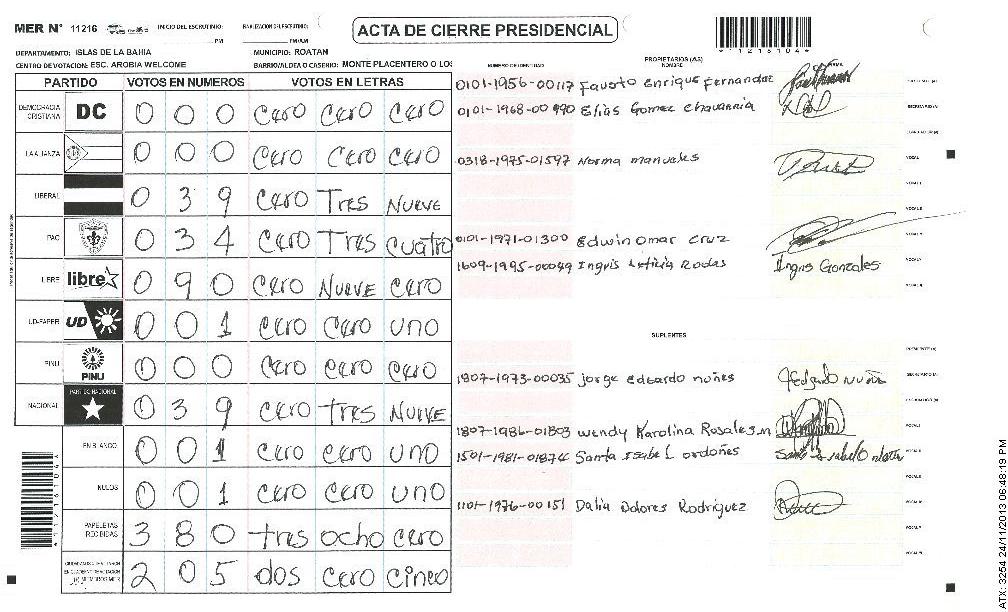 MER N° 11216 INICIO DEL ESCRUTINIO: PM FINALIZACION DEL ESCRUTINIO: PM/AM
ACTA DE CIERRE PRESIDENCIAL
*1216104*
DEPARTAMENTO: ISLAS DE LA BAHIA MUNICIPIO: ROATAN
CENTRO DE VOTACION: ESC. AROBIA WELCOME BARRIO/ALDEA O CASERIO: MONTE PLACENTERO O LOS
PARTIDO VOTOS EN NUMEROS VOTOS EN LETRAS
DEMOCRACIA CRISTIANA DC 0 0 0 Cero Cero Cero
LA ALIANZA 0 0 0 Cero Cero Cero
LIBERAL 0 3 9 Cero Tres Nueve
PAC 0 3 4 Cero Tres Cuatro
LIBRE libre 0 9 0 Cero Nueve Cero
UD-FAPER UD 0 0 1 Cero Cero uno
PINU PINU 0 0 0 Cero Cero Cero
NACIONAL PARTIDO NACIONAL 0 3 9 Cero tres Nueve
EN BLANCO 0 0 1 Cero Cero uno
NULOS 0 0 1 Cero Cero uno
PAPELETAS RECIBIDAS 3 8 0 tres ocho cero
2 0 5 dos cero cinco
NUMERO DE IDENTIDAD PROPIETARIOS (AS) NOMBRE FIRMA
0101-1956-00117 Fausto Enrique Fernandez
0101-1968-00990 Elias Gomez Chavarria
0318-1975-01597 Norma manueles
0101-1971-01300 Edwin Omar Cruz
1609-1995-00049 Ingris Leticia Rodas Ingris Gonzales
SUPLENTES
1807-1973-00035 Jorge Edgardo nuñes
1807-1986-01803 Wendy Karolina Rosales.m
1501-1981-01874 Santa Isabel ordoñes
1101-1976-00151 Dalia Dolores Rodriguez
ATX: 3254 24/11/2013 06:48:19 PM